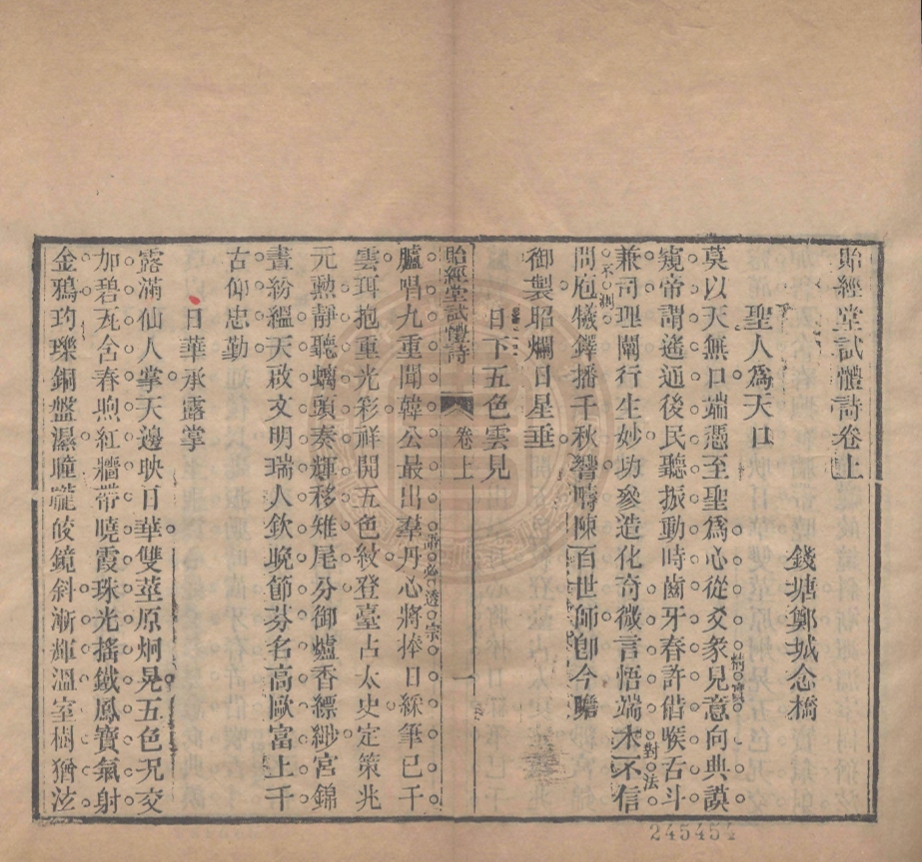 貽經堂試體詩卷上
錢塘鄭城念橋
聖人爲天口
莫以天無口端憑至聖爲心從爻象見意向典謨
窺帝謂遙逈後民聽振動時齒牙春許借喉舌斗
兼司理闡行生妙功參造化奇微言悟端木不信
問庖犧鐸播千秋響疇陳百世師卽今瞻
御製昭爛日星垂
日下五色雲見
臚唱九重聞韓公最出羣丹心將捧日綵筆已干
雲珥抱重光彩祥開五色紋登臺占太史定策兆
元勳靜聽螭頭奏輝移雉尾分御爐香縹緲宮錦
畫紛縕天啟文明瑞人欽晚節芬名高歐富上千
古仰忠勤
日華承露掌
露滿仙人掌天邊映日華雙莖原炯晃五色況交
加碧瓦含春煦紅牆帶曉霞珠光搖鐵鳳寶氣射
金鴉玓瓅銅盤濕曈曨皎鏡斜漸輝溫室樹猶泫
貽經堂試體詩
卷上
一
對法
不測
透宗
245454